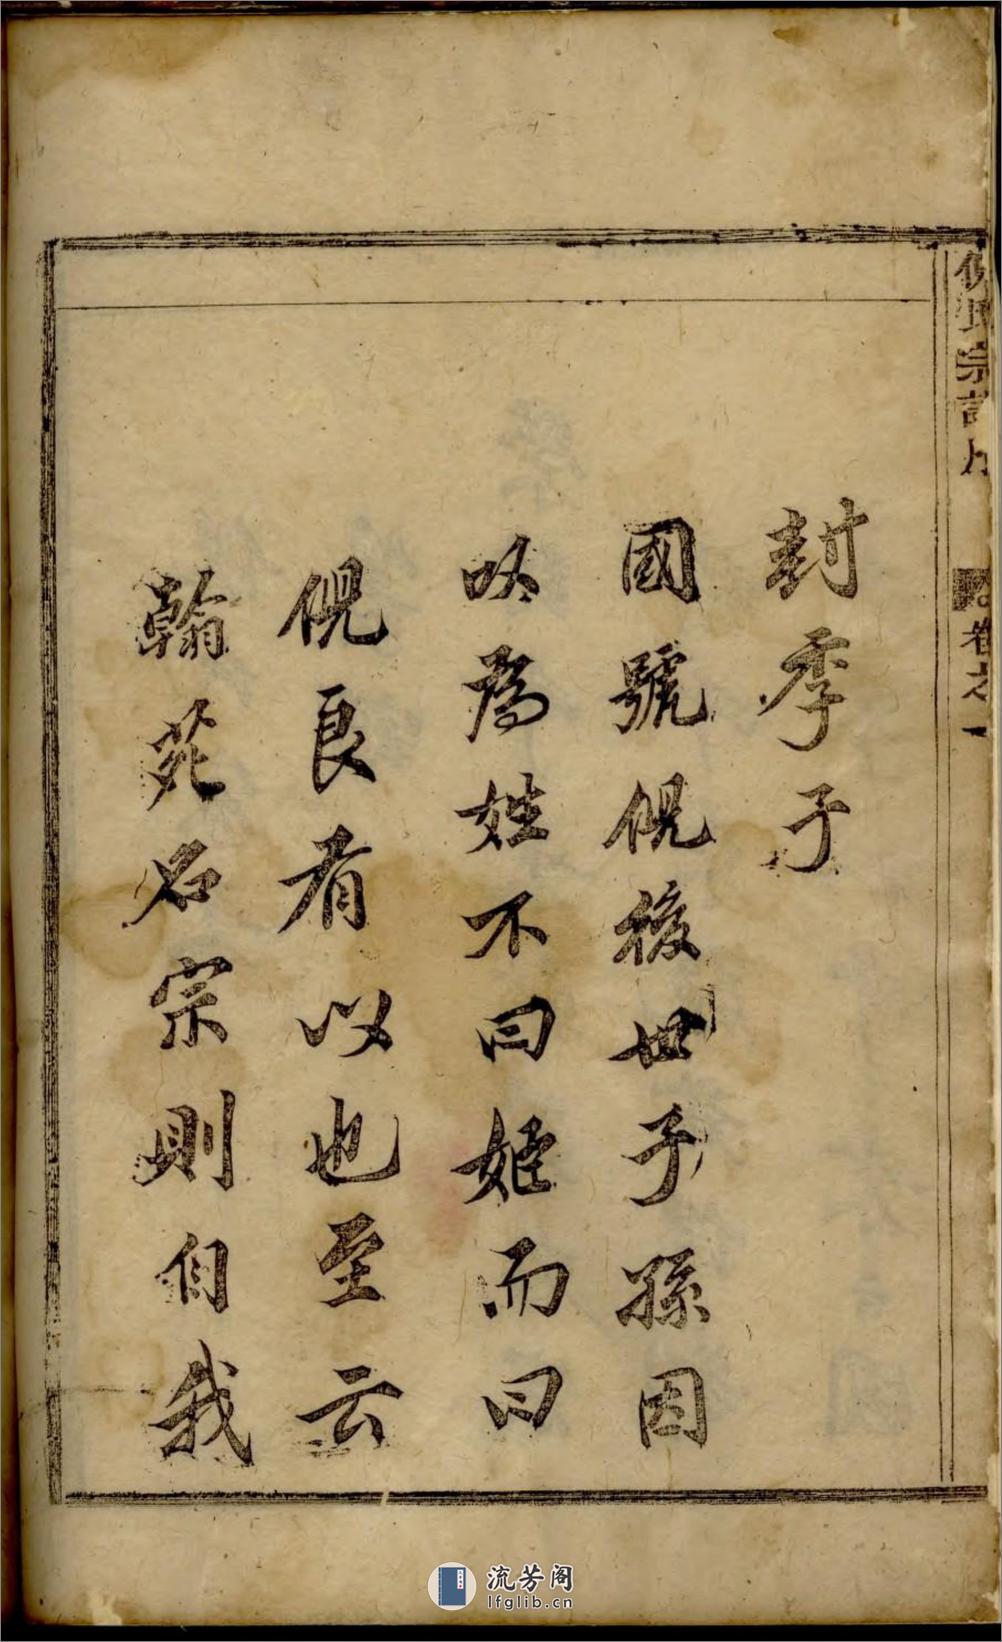 倪氏宗譜序
卷之一
封季子
國號倪後世子孫因
以為姓不曰姬而曰
倪良有以也至云
翰苑名宗則自我
流芳阁
lfglib.cn